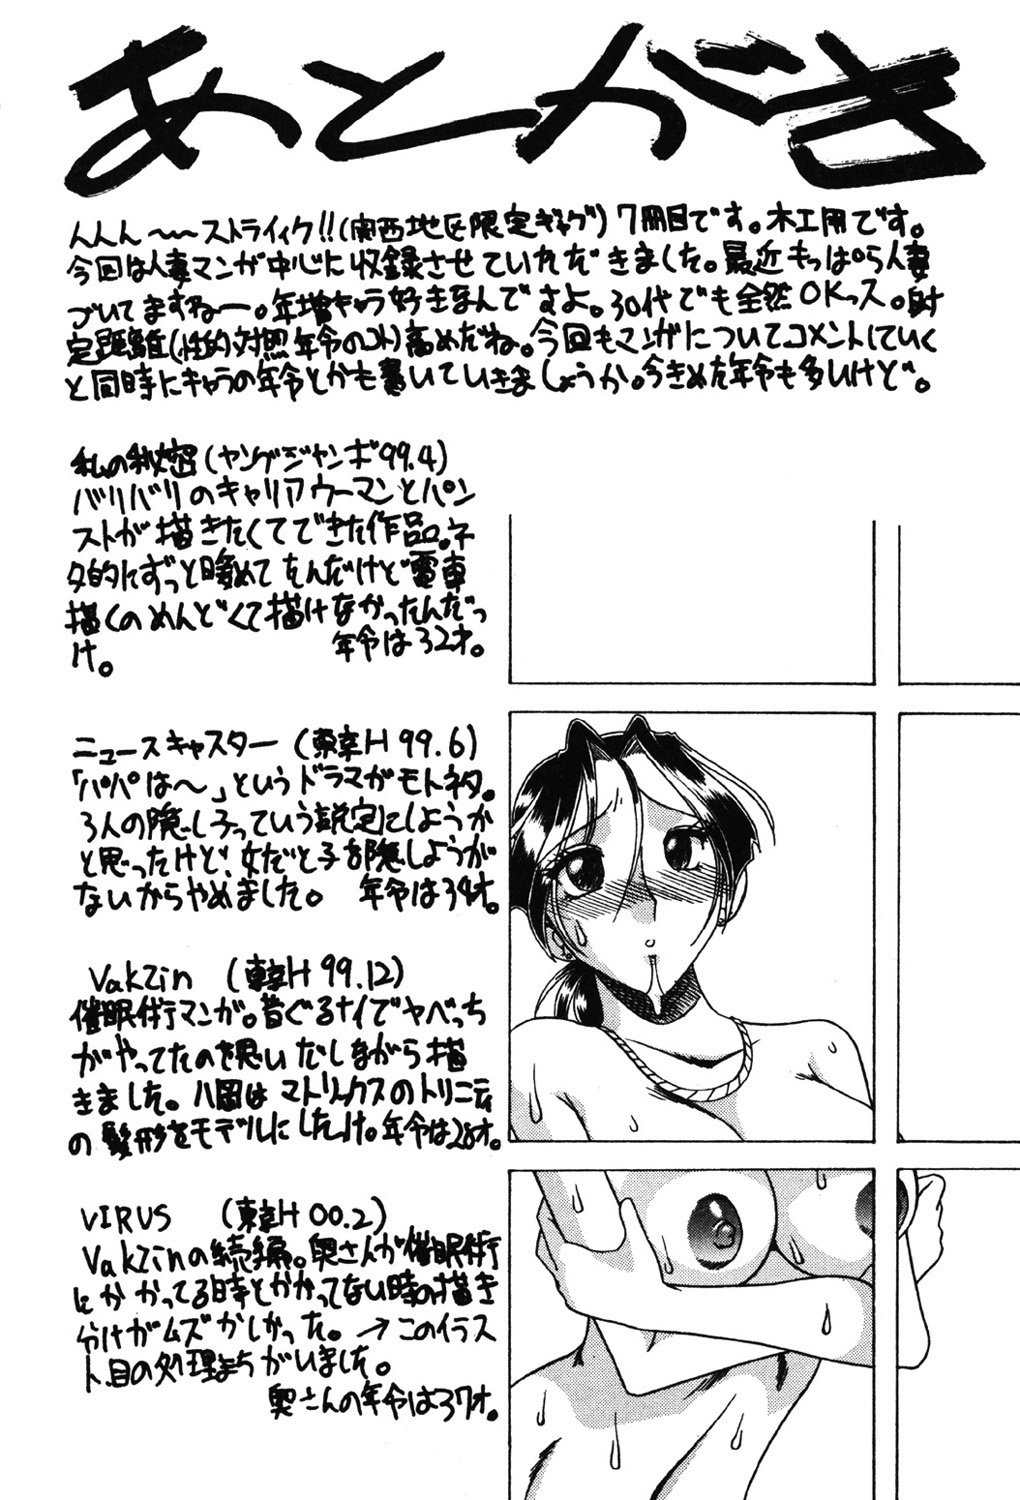 あとがき
んんん〜〜ストライィク!!(関西地区限定ギャグ)7冊目です。木工用です。
今回は人妻マンガ中心に収録させていただきました。最近もっぱら人妻
づいてますねー。年増キャラ好きなんですよ。30代でも全然OKっス。射
定距離(性的対照年令のコト)高めだね。今回もマンガについてコメントしていく
と同時にキャラの年令とかも書いていきましょうか。今きめた年令も多いけど。
私の秘密(ヤングジャンボ'99.4)
バリバリのキャリアウーマンとパン
ストが描きたくてできた作品。ネ
タ的にずっと暖めてたんだけど電車
描くのめんどくて描けなかったんだっ
け。
年令は32才。
ニュースキャスター(東京H 99.6)
「パパは〜」というドラマがモトネタ。
3人の隠し子っていう設定にしようか
と思ったけど、女だと子を隠しようが
ないからやめました。 年令は34才。
VakZin (東京H 99.12)
催眠術マンガ。昔ぐるナイでヤベっち
がやってたのを思いだしながら描
きました。八岡はマトリックスのトリニティ
の髪形をモデルにしたっけ。年令は28才。
VIRUS (東京H 00.2)
VakZinの続編。奥さんが催眠術
にかかってる時とかかってない時の描き
分けがムズかしかった。→このイラス
ト、目の処理まちがいました。
奥さんの年令は37才。